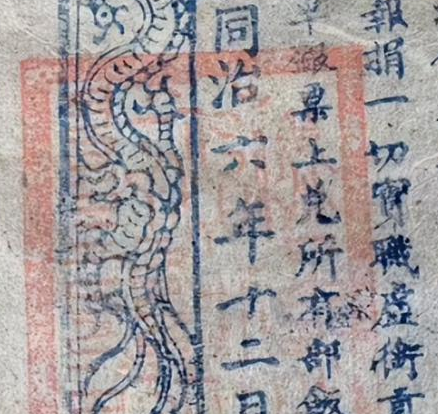 報捐一切實職虛銜
單銀票上兌所有部飯
同治六年十二月